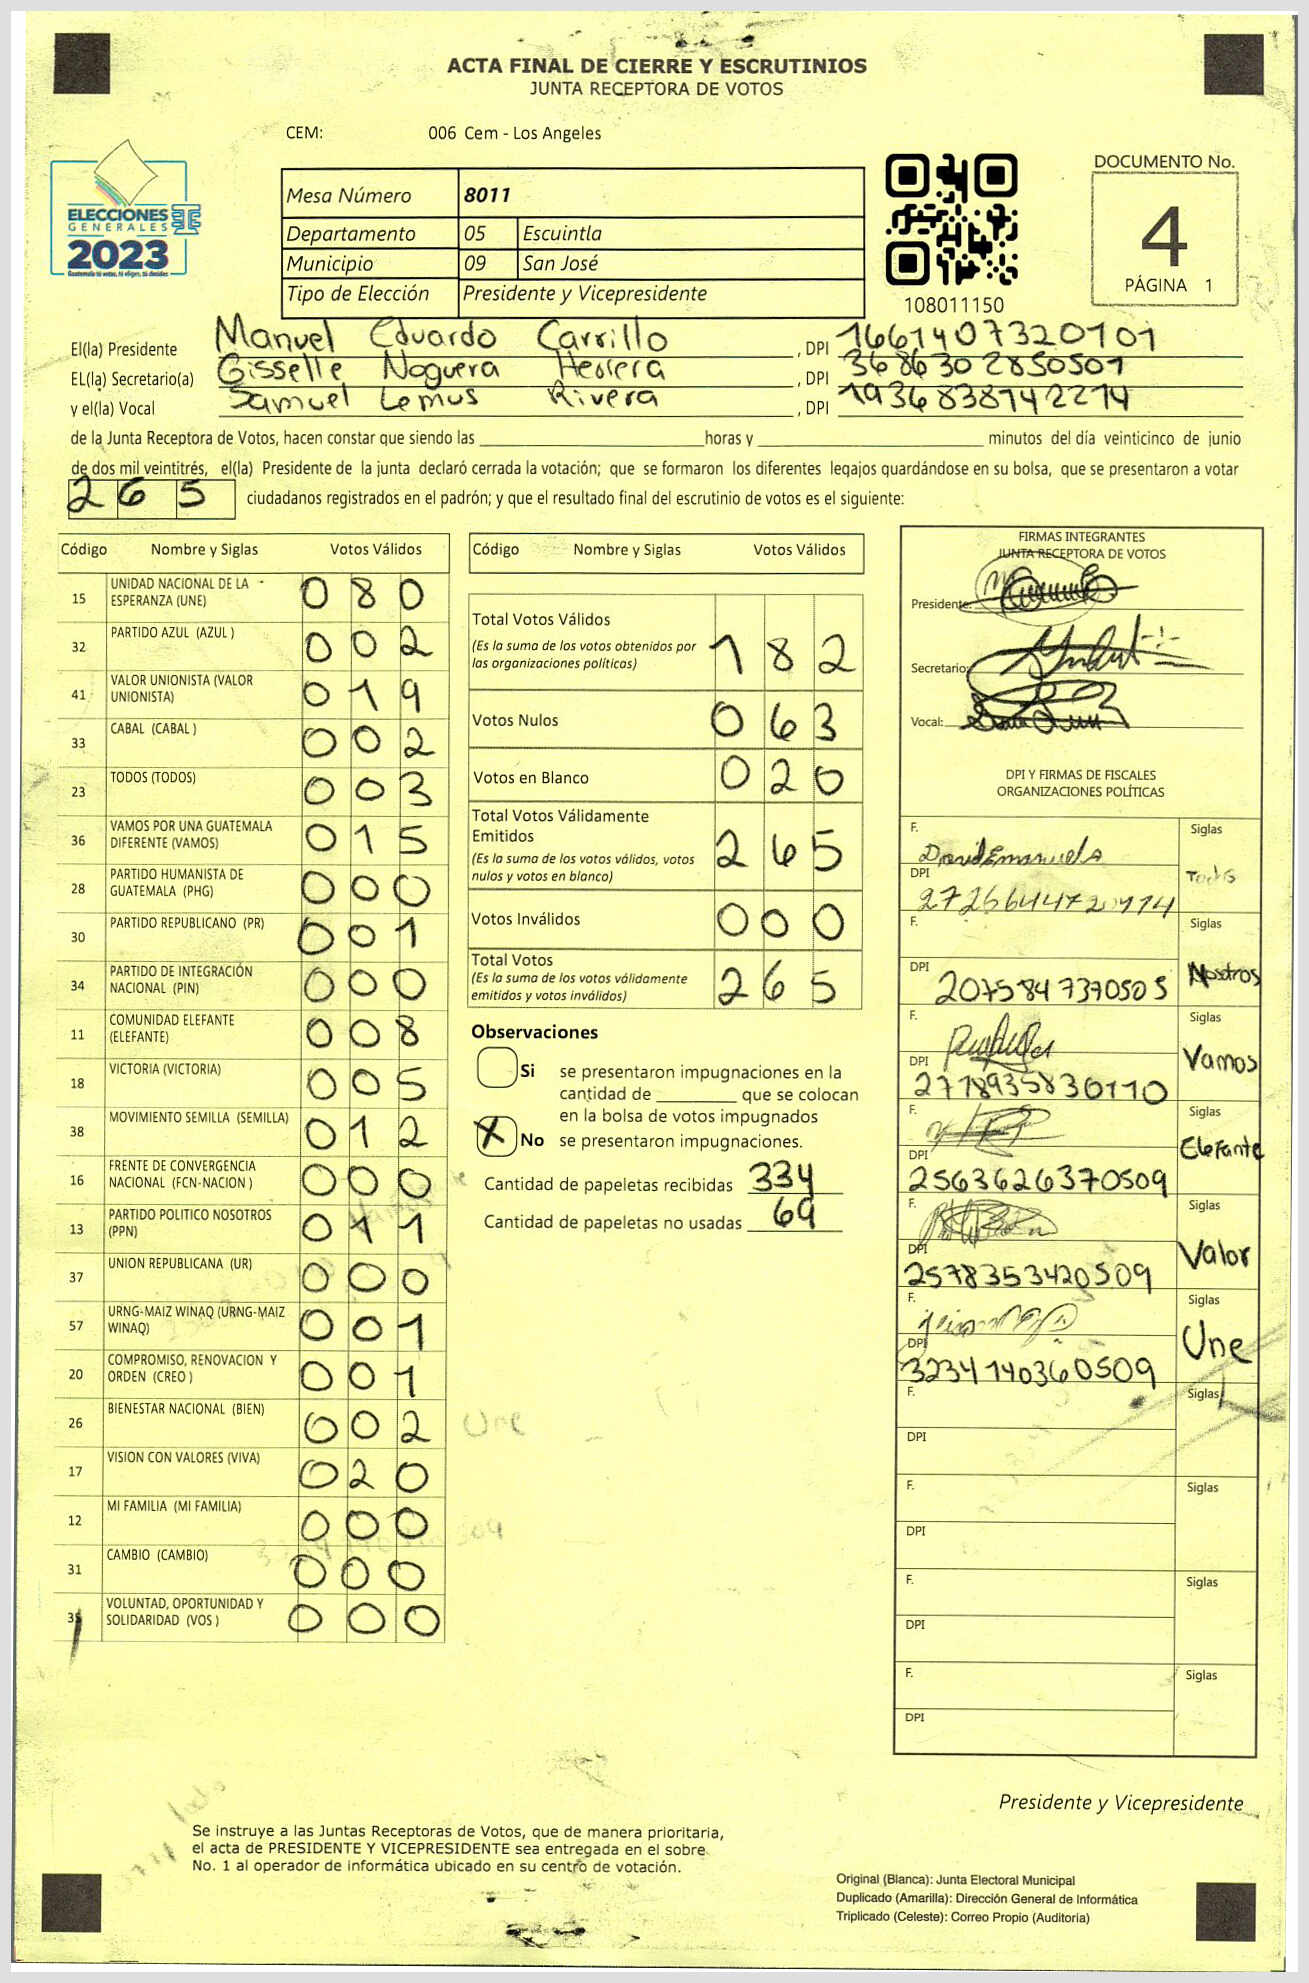 ACTA FINAL DE CIERRE Y ESCRUTINIOS
JUNTA RECEPTORA DE VOTOS
CEM: 006 Cem - Los Angeles
ELECCIONES
GENERALES
2023
Guatemala tú votas, tú eliges, tú decides
Mesa Número 8011
Departamento 05 Escuintla
Municipio 09 San José
Tipo de Elección Presidente y Vicepresidente
108011150
DOCUMENTO No.
4
PÁGINA 1
El(la) Presidente Manuel Eduardo Carrillo, DPI 1661407320101
EL(la) Secretario(a) Gisselle Noguera Herrera, DPI 3686302850501
y el(la) Vocal Samuel Lemus Rivera, DPI 1936838742214
de la Junta Receptora de Votos, hacen constar que siendo las horas y minutos del día veinticinco de junio
de dos mil veintitrés, el(la) Presidente de la junta declaró cerrada la votación; que se formaron los diferentes legajos guardándose en su bolsa, que se presentaron a votar
265 ciudadanos registrados en el padrón; y que el resultado final del escrutinio de votos es el siguiente:
Código Nombre y Siglas Votos Válidos
15 UNIDAD NACIONAL DE LA ESPERANZA (UNE) 080
32 PARTIDO AZUL (AZUL ) 002
41 VALOR UNIONISTA (VALOR UNIONISTA) 019
33 CABAL (CABAL ) 002
23 TODOS (TODOS) 003
36 VAMOS POR UNA GUATEMALA DIFERENTE (VAMOS) 015
28 PARTIDO HUMANISTA DE GUATEMALA (PHG) 000
30 PARTIDO REPUBLICANO (PR) 001
34 PARTIDO DE INTEGRACIÓN NACIONAL (PIN) 000
11 COMUNIDAD ELEFANTE (ELEFANTE) 008
18 VICTORIA (VICTORIA) 005
38 MOVIMIENTO SEMILLA (SEMILLA) 012
16 FRENTE DE CONVERGENCIA NACIONAL (FCN-NACION ) 000
13 PARTIDO POLITICO NOSOTROS (PPN) 011
37 UNION REPUBLICANA (UR) 000
57 URNG-MAIZ WINAQ (URNG-MAIZ WINAQ) 001
20 COMPROMISO, RENOVACION Y ORDEN (CREO ) 001
26 BIENESTAR NACIONAL (BIEN) 002
17 VISION CON VALORES (VIVA) 020
12 MI FAMILIA (MI FAMILIA) 000
31 CAMBIO (CAMBIO) 000
35 VOLUNTAD, OPORTUNIDAD Y SOLIDARIDAD (VOS ) 000
Código Nombre y Siglas Votos Válidos
Total Votos Válidos
(Es la suma de los votos obtenidos por
las organizaciones políticas) 182
Votos Nulos 063
Votos en Blanco 020
Total Votos Válidamente
Emitidos
(Es la suma de los votos válidos, votos
nulos y votos en blanco) 265
Votos Inválidos 000
Total Votos
(Es la suma de los votos válidamente
emitidos y votos inválidos) 265
Observaciones
Si se presentaron impugnaciones en la
cantidad de que se colocan
en la bolsa de votos impugnados
X No se presentaron impugnaciones.
Cantidad de papeletas recibidas 334
Cantidad de papeletas no usadas 69
Une
FIRMAS INTEGRANTES
JUNTA RECEPTORA DE VOTOS
Presidente:
Secretario:
Vocal:
DPI Y FIRMAS DE FISCALES
ORGANIZACIONES POLÍTICAS
F. Siglas
DPI Todos
F. Siglas
DPI 2075847370505 Nosotros
F. Siglas
DPI 2778935830110 Vamos
F. Siglas
DPI 2563626370509 Elefante
F. Siglas
DPI 2578353420509 Valor
F. Siglas
DPI 3234140360509 Une
F. Siglas
DPI
F. Siglas
DPI
F. Siglas
DPI
F. Siglas
DPI
Presidente y Vicepresidente
Se instruye a las Juntas Receptoras de Votos, que de manera prioritaria,
el acta de PRESIDENTE Y VICEPRESIDENTE sea entregada en el sobre
No. 1 al operador de informática ubicado en su centro de votación.
Original (Blanca): Junta Electoral Municipal
Duplicado (Amarilla): Dirección General de Informática
Triplicado (Celeste): Correo Propio (Auditoria)